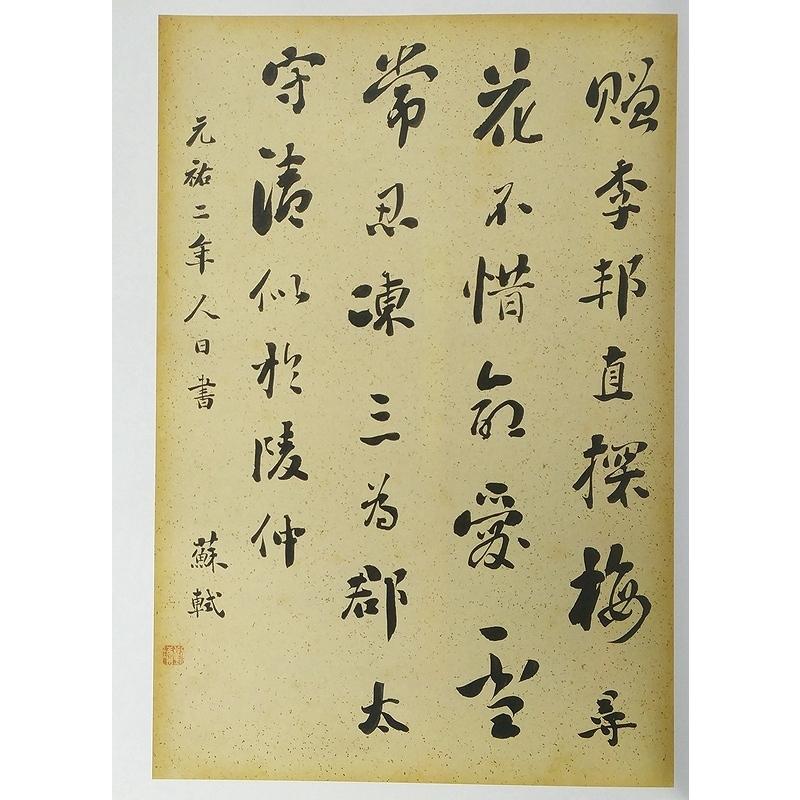 贈李邦直探梅尋
花不惜命愛雪
常忍凍三為郡太
守清似於陵仲
元祐二年人日書 蘇軾